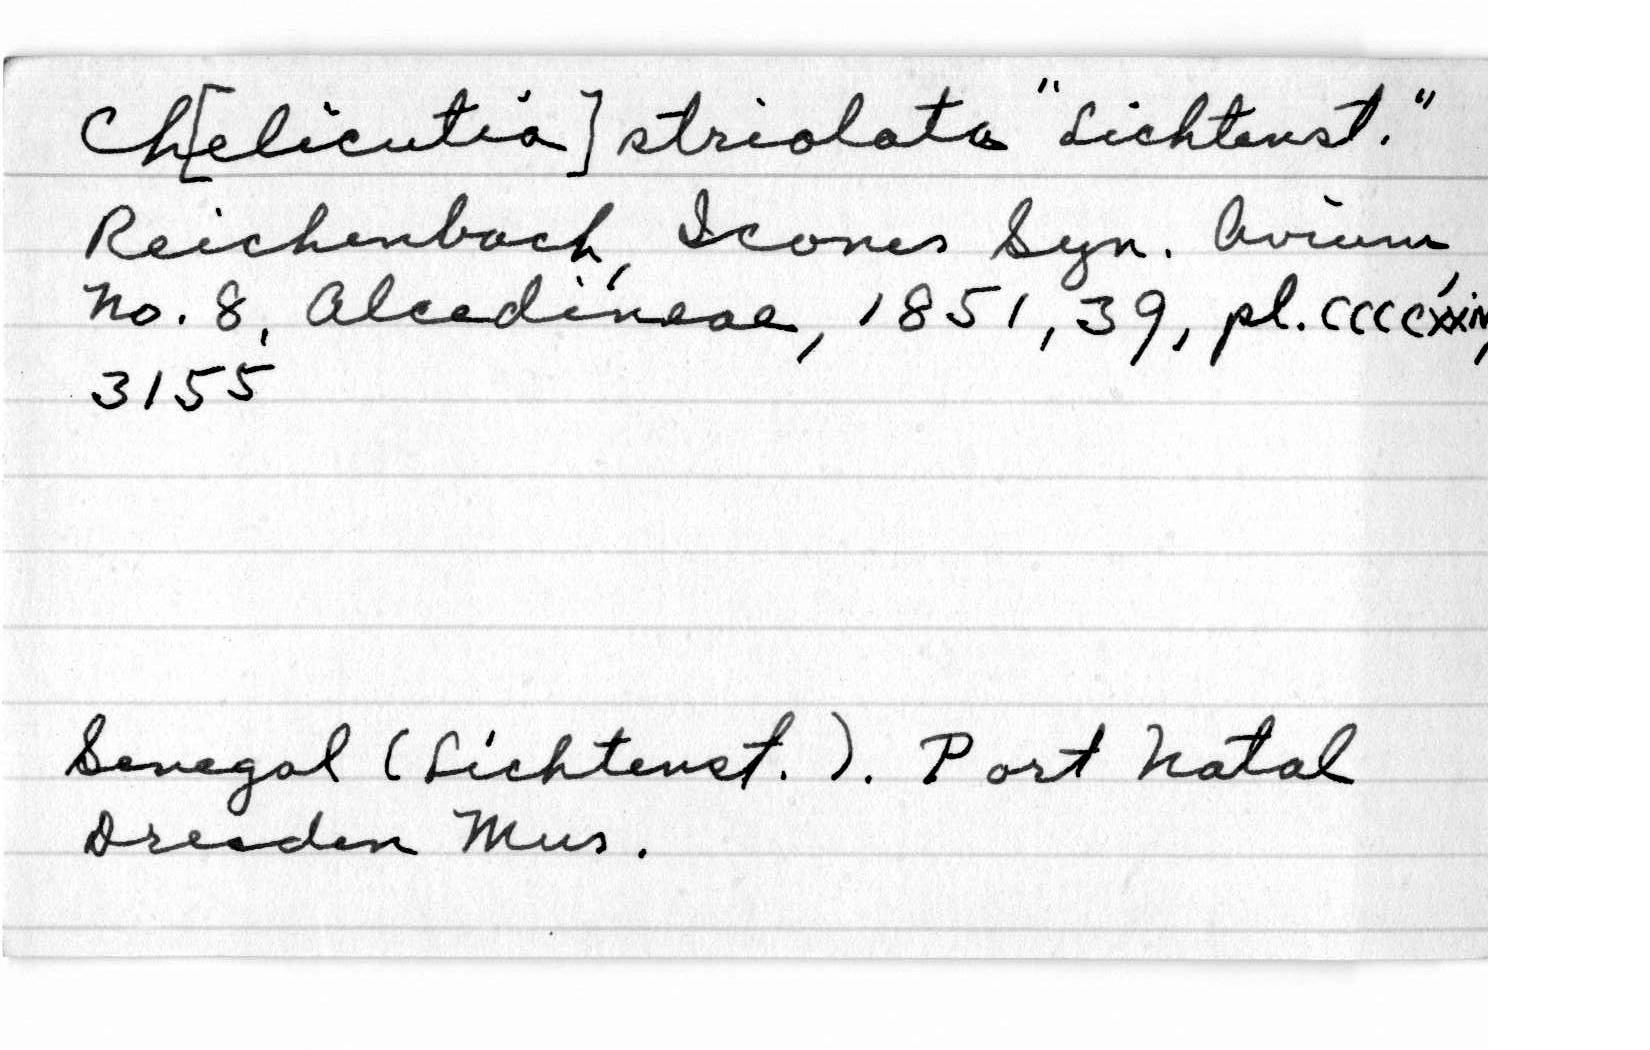 Ch[elicutia] striolata "Lichtenst."
Reichenbach, Icones Syn. Avium
No. 8, Alcedineae, 1851, 39, pl. ccccxxiv,
3155
Senegal (Lichtenst.). Port Natal
Dresden Mus.